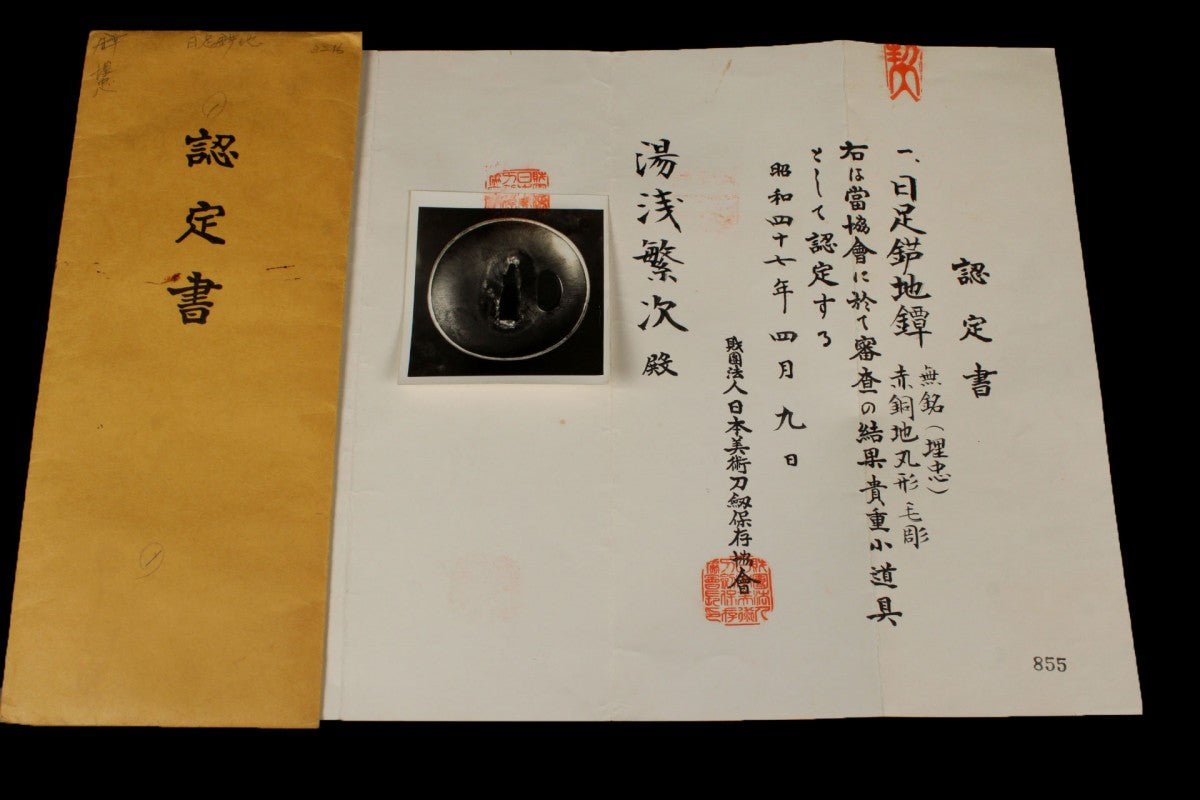 認定書
一、日足鑢地鐔
無銘(埋忠)
赤銅地丸形毛彫
右は當協會に於て審査の結果貴重小道具
として認定する
昭和四十七年四月九日
財團法人日本美術刀剱保存協會
湯浅繁次殿
855
認定書